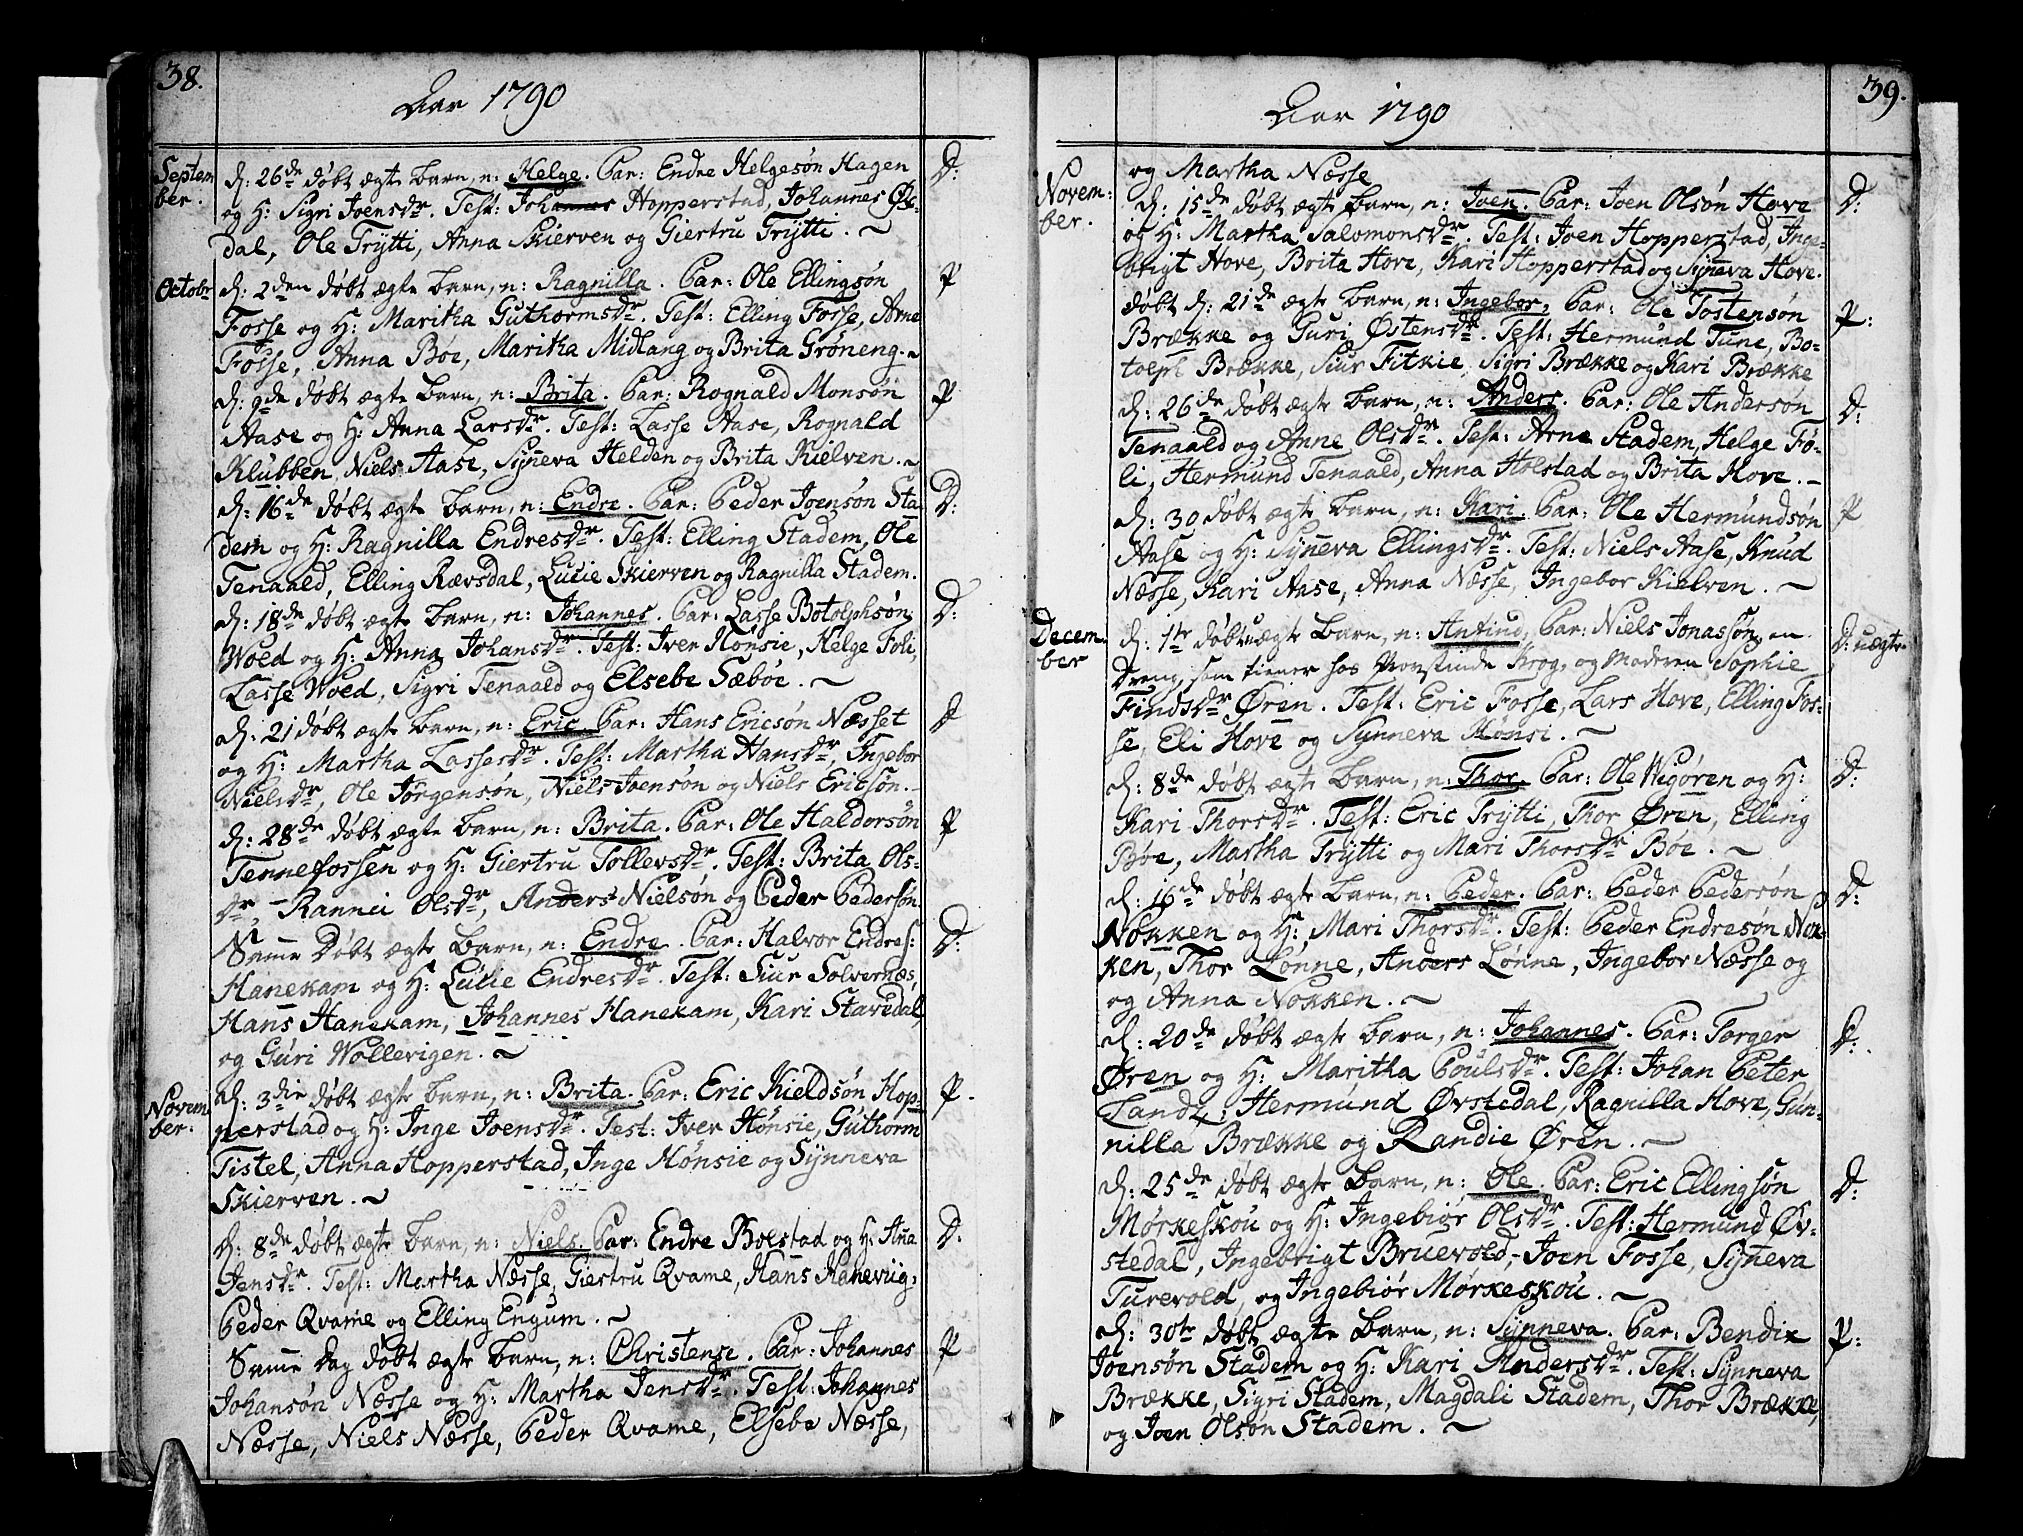 38.
Aar 1790
Septem
ber.
d: 26de døbt ægte barn, n: Helge. Par: Endre Helgesøn Hagen D:
og H: Sigri Joensdr. Test: Johannes Hopperstad, Johannes
dal, Ole Trytti, Anna Skierven og Giertru Trytti.
Octobr
d: 2den døbt ægte barn, n: Ragnilla. Par: Ole Ellingsøn P
Fosse og H: Maritha Guthormsdr. Test: Elling Fosse, Arne
Fosse, Anna Bøe, Maritha Midlang og Brita Grøneng.
d: 9de døbt ægte barn, n: Brita. Par: Rognald Monsøn P
Aase og H: Anna Larsdr. Test: Lasse Aase, Rognald
Klubben, Niels Aase, Synneva Helden og Brita Kielven.
d: 16de døbt ægte barn, n: Endre. Par: Peder Joensøn Sta D:
dem og H: Ragnilla Endresdr. Test: Elling Stadem, Ole
Tenaald, Elling Rævsdal, Lucie Skierven og Ragnilla Stadem.
d: 18de døbt ægte barn, n: Johannes. Par: Lasse Botolphsøn D:
Woed og H: Anna Johansdr. Test: Iver Hønsie, Helge Foli,
Lasse Woed, Sigri Tenaald og Elsebe Sæbøe.
d: 21 døbt ægte barn, n: Eric. Par: Hans Ericsøn Næsset D
og H: Martha Lassesdr. Test: Martha Hansdr, Ingebor
Nielsdr, Ole Jørgensøn, Niels Joensøn og Niels Ericsøn.
d: 28de døbt ægte barn, n: Brita. Par: Ole Haldorsøn P
Tennefossen og H: Giertru Tollevsdr. Test: Brita Ols-
dr, Rannei Olsdr, Anders Nielsøn og Peder Pedersøn.
Samme Døbt ægte Barn, n: Endre. Par: Halvor Endres: D:
Hanekam og H: Lucie Endresdr. Test: Siur Solvernæs,
Hans Hanekam, Johannes Hanekam, Kari Stavedal,
og Guri Wollevigen.
Novem
ber.
d: 3die døbt ægte barn, n: Brita. Par: Eric Kieldsøn Hop P.
perstad og H: Inge Joensdr. Test: Iver Hønsie, Guthorm
Tistel, Anna Hopperstad, Inge Hønsie og Synneva
Skierven.
d: 8de døbt ægte barn, n: Niels. Par: Endre Bolstad og H: Aña D.
Jensdr. Test: Martha Næsse, Giertru Qvame, Hans Haneviig,
Peder Qvame og Elling Engum.
Samme Dag døbt ægte barn, n: Christense. Par: Johannes P
Johansøn Næsse og H: Martha Jensdr. Test: Johannes
Næsse, Niels Næsse, Peder Qvame, Elsebe Næsse,
39.
Aar 1790
Novem-
ber.
og Martha Næsse
d: 15de døbt ægte barn, n: Joen. Par: Joen Olsøn Hove D:
og H: Martha Salomonsdr. Test: Joen Hopperstad, Inge-
brigt Hove, Brita Hove, Kari Hopperstad og Synneva Hove.
døbt d: 21de ægte barn, n: Ingebor, Par: Ole Tostensøn P:
Brække og Guri Østensdr. Test: Hermund Tune, Bo-
tolph Brække, Siur Fitkie, Sigri Brække og Kari Brække
d: 26de døbt ægte barn, n: Anders. Par: Ole Andersøn D:
Tenaald og Anne Olsdr. Test: Arne Stadem, Helge Fo-
li, Hermund Tenaald, Anna Holstad og Brita Hove.
d: 30 døbt ægte barn, n: Kari. Par: Ole Hermundsøn P
Aase og H: Synneva Ellingsdr. Test: Niels Aase, Knud
Næsse, Kari Aase, Anna Næsse, Ingebor Kielven.
Decem
ber
d: 1te døbt uægte Barn, n: Antind, Par: Niels Jonassøn, en D: uægte
Dreng, som tiener hos Provstinde Krog, og Moderen Sophie
Findsdr Øren. Test: Eric Fosse, Lars Hove, Elling Fos-
se, Eli Hove og Synneva Hønsi.
d: 8de døbt ægte barn, n: Thor. Par: Ole Wigøren og H: D:
Kari Thorsdr. Test: Eric Trytti, Thor Øren, Elling
Bøe, Martha Trytti og Mari Thorsdr Bøe.
d: 16de døbt ægte Barn, n: Peder. Par: Peder Pedersøn D:
Nokken og H: Mari Thorsdr. Test: Peder Endresøn Nok-
ken, Thor Lønne, Anders Lønne, Ingebor Næsse og
og Anna Nokken.
d: 20de døbt ægte barn, n: Johannes. Par: Torger D:
Øren og H: Maritha Poulsdr. Test: Johan Peter
Landt, Hermund Øvstedal, Ragnilla Hove, Gun-
nilla Brække og Randie Øren.
d: 25de døbt ægte barn, n: Ole. Par: Eric Ellingsøn D:
Mørkeskou og H: Ingebiør Olsdr. Test: Hermund Øv-
stedal, Ingebrigt Bruevold, Joen Fosse, Synneva
Turevold, og Ingebiør Mørkeskou.
d: 30te døbt ægte barn, n: Synneva. Par: Bendix P:
Joensøn Stadem og H: Kari Andersdr. Test: Synneva
Brække, Sigri Stadem, Magdali Stadem, Thor Brække,
og Joen Olsøn Stadem.